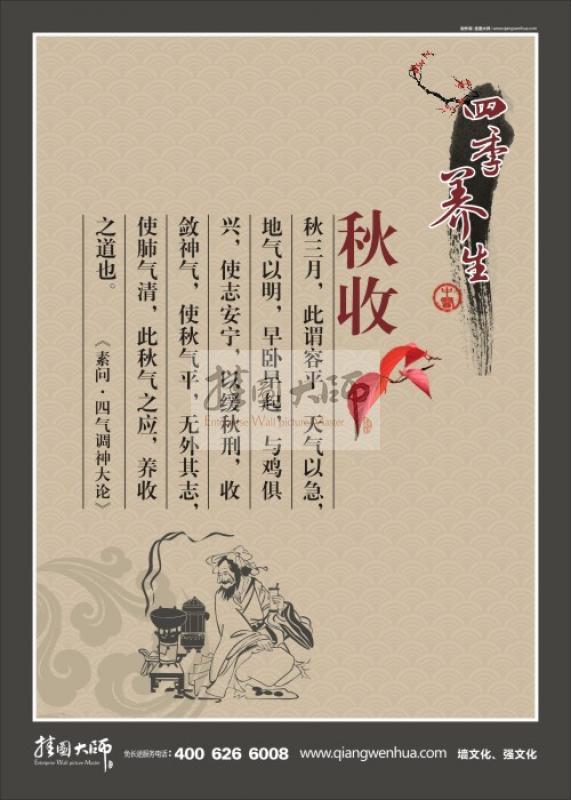 四季养生
秋收
秋三月，此谓容平，天气以急，
地气以明，早卧早起，与鸡俱
兴，使志安宁，以缓秋刑，收
敛神气，使秋气平，无外其志，
使肺气清，此秋气之应，养收
之道也。
《素问·四气调神大论》
挂图大师
Enterprise Wall picture Master
挂图大师
Enterprise Wall picture Master
免长途服务电话：400 626 6008
www.qiangwenhua.com
墙文化、强文化